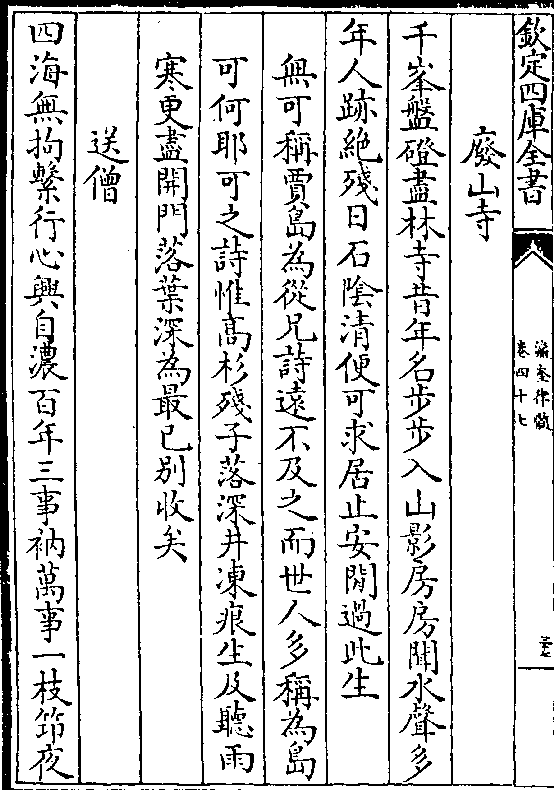 欽定四庫全書
瀛奎律髓
卷四十七
廢山寺
千峯盤磴盡林寺昔年名步步入山影房房聞水聲多
年人跡絶殘日石陰清便可求居止安閒過此生
無可稱賈島為從兄詩遠不及之而世人多稱為島
可何耶可之詩惟髙杉殘子落深井凍痕生及聽雨
寒更盡開門落葉深為最已别收矣
送僧
四海無拘繫行心興自濃百年三事衲萬事一枝筇夜